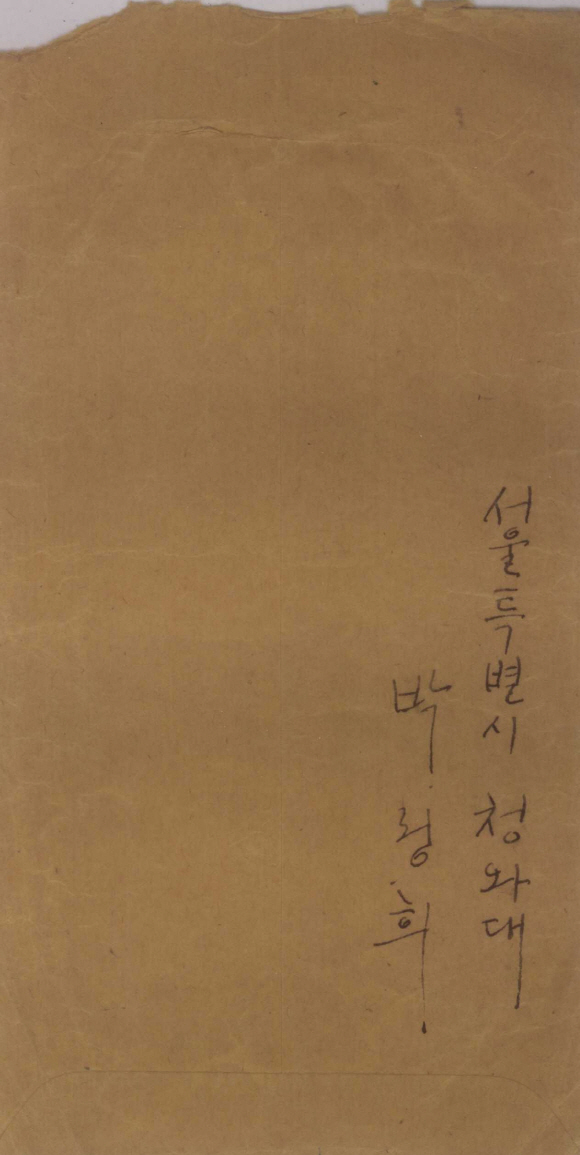 서울특별시 청와대
박정희